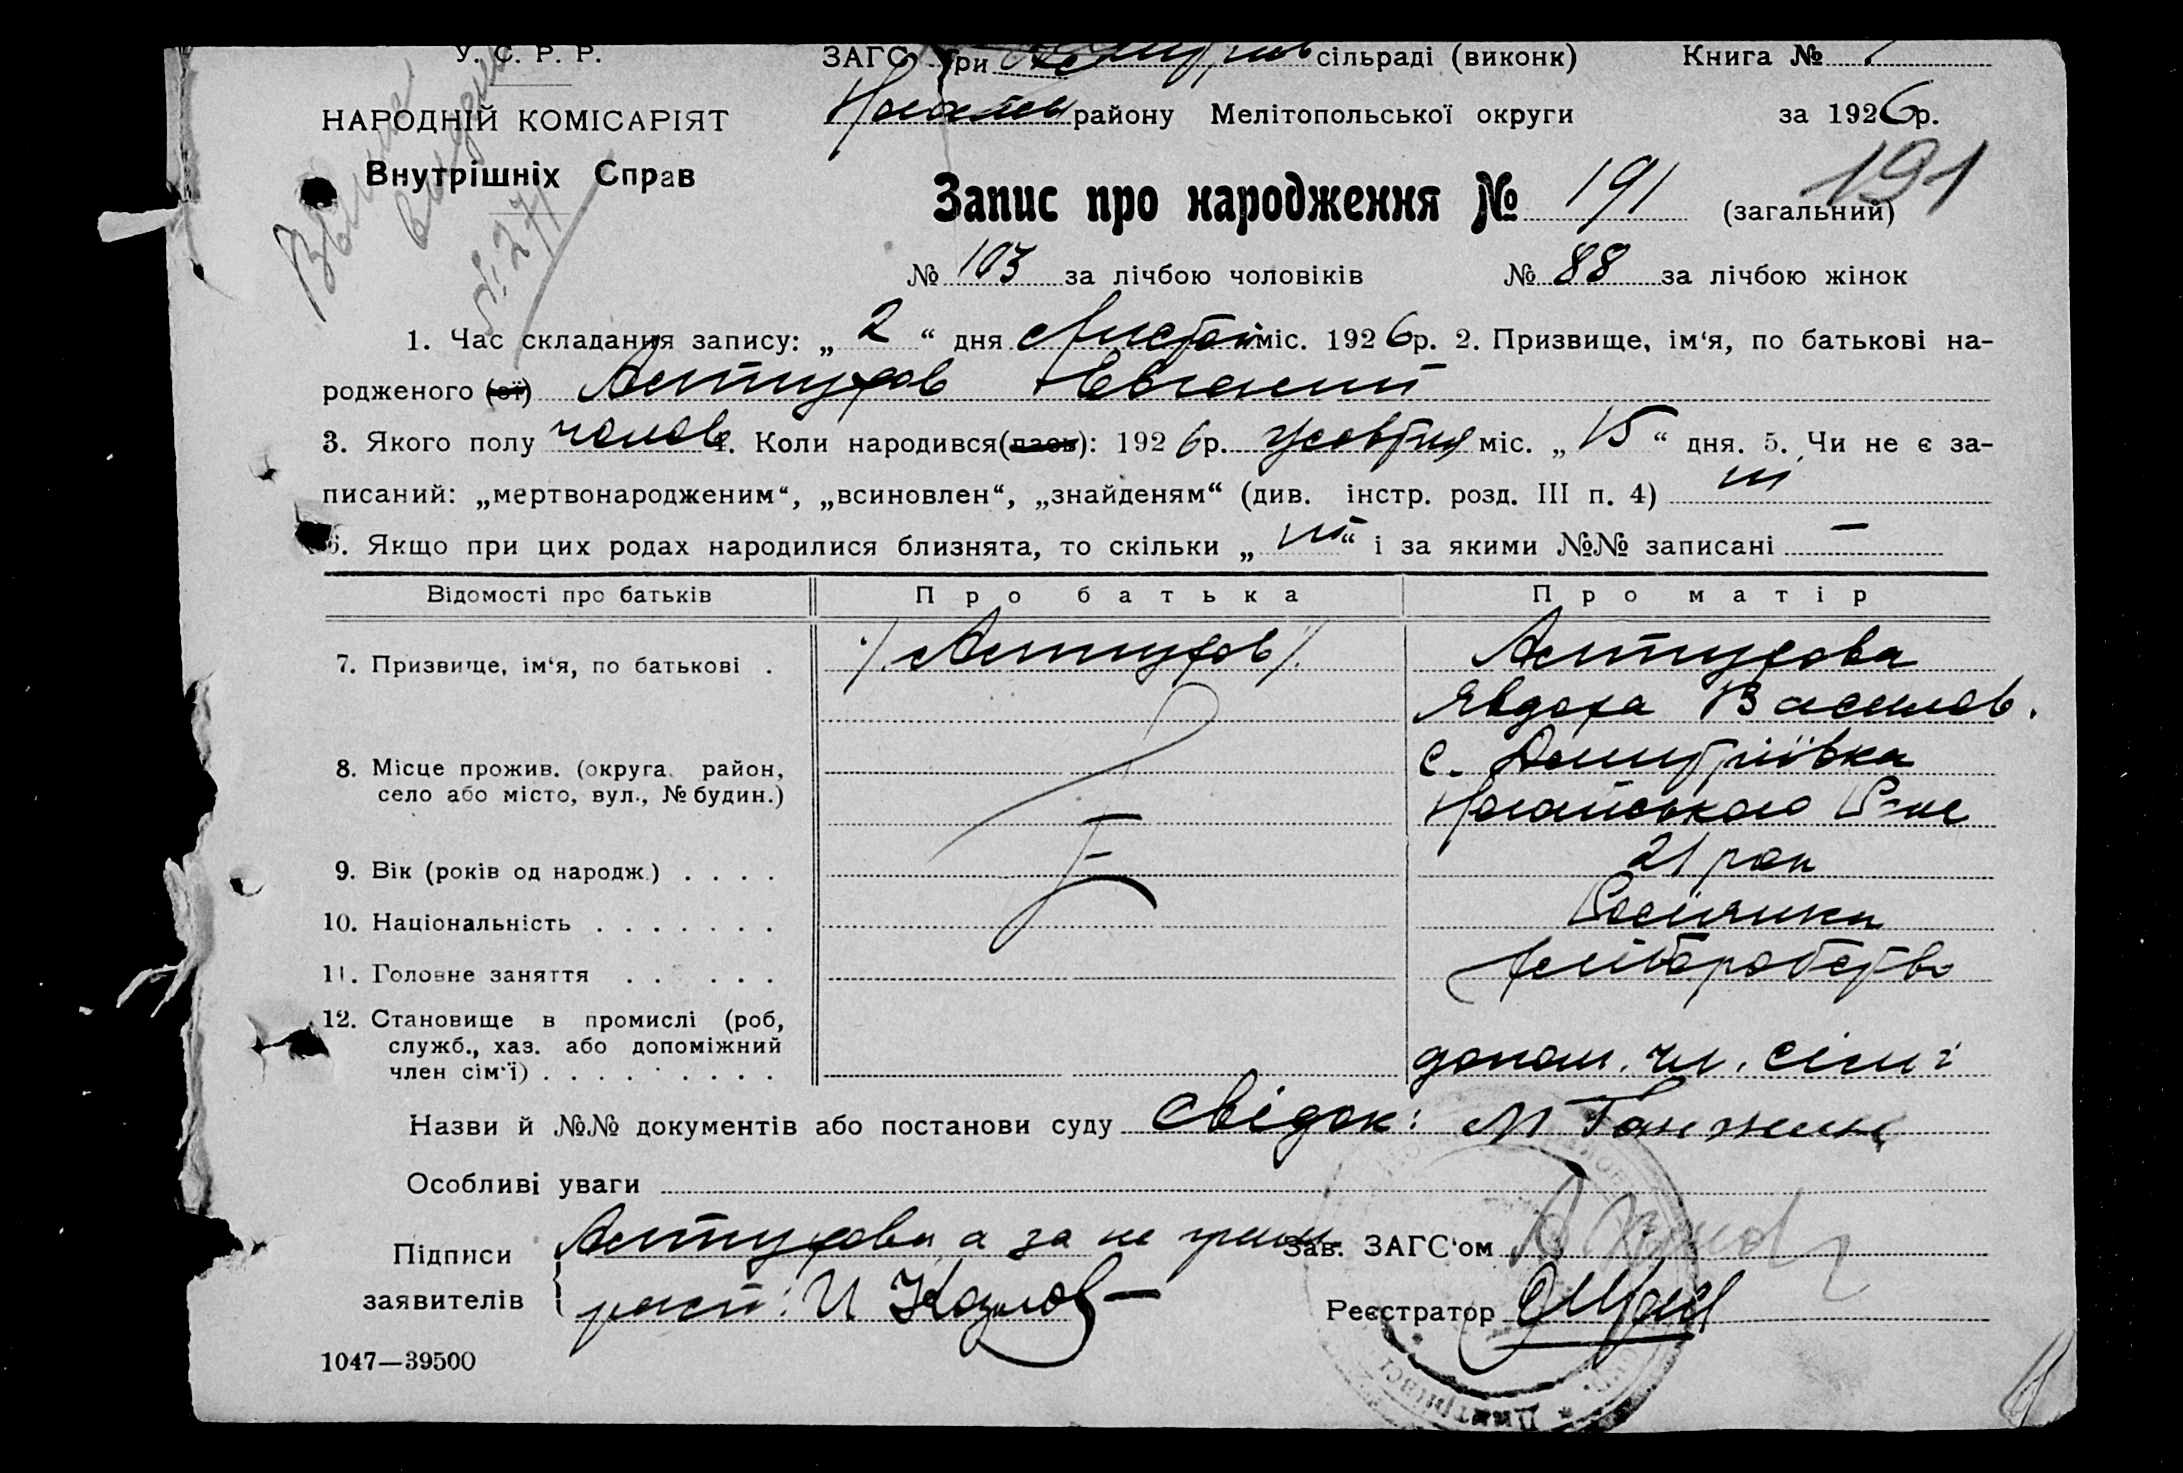 У. С. Р. Р.
ЗАГС при сільраді (виконк) Книга №
НАРОДНІЙ КОМІСАРІЯТ
району Мелітопольської округи за 1926р.
Внутрішніх Справ
Запис про народження № 191 (загальний) 191
№ 103 за лічбою чоловіків № 88 за лічбою жінок
1. Час складання запису: „ 2 “ дня міс. 1926р. 2. Призвище, ім‘я, по батькові на-
родженого (ої) Алтухов Евгений
3. Якого полу чолов 4. Коли народився(лась): 1926р. жовтня міс. „ 15 “ дня. 5. Чи не є за-
писаний: „мертвонародженим“, „всиновлен“, „знайденям“ (див. інстр. розд. III п. 4) ні
6. Якщо при цих родах народилися близнята, то скільки „ ні “ і за якими №№ записані —
Відомості про батьків Про батька Про матір
7. Призвище, ім‘я, по батькові . Алтухов Алтухова
Явдоха Василів.
8. Місце прожив. (округа, район, с. Дмитріївка
село або місто, вул., № будин.) Ногайського
9. Вік (років од народж.) . . . . 21 рок
10. Національність . . . . . . . Росіянка
11. Головне заняття . . . . . . хліборобство
12. Становище в промислі (роб,
служб., хаз. або допоміжний допом. чл. сім'ї
член сім‘ї) . . . . . . . . .
Назви й №№ документів або постанови суду Свідок: М
Особливі уваги
Підписи Алтухова а за не грам Зав. ЗАГС‘ом
заявителів расп: И Козлов Реєстратор
1047—39500